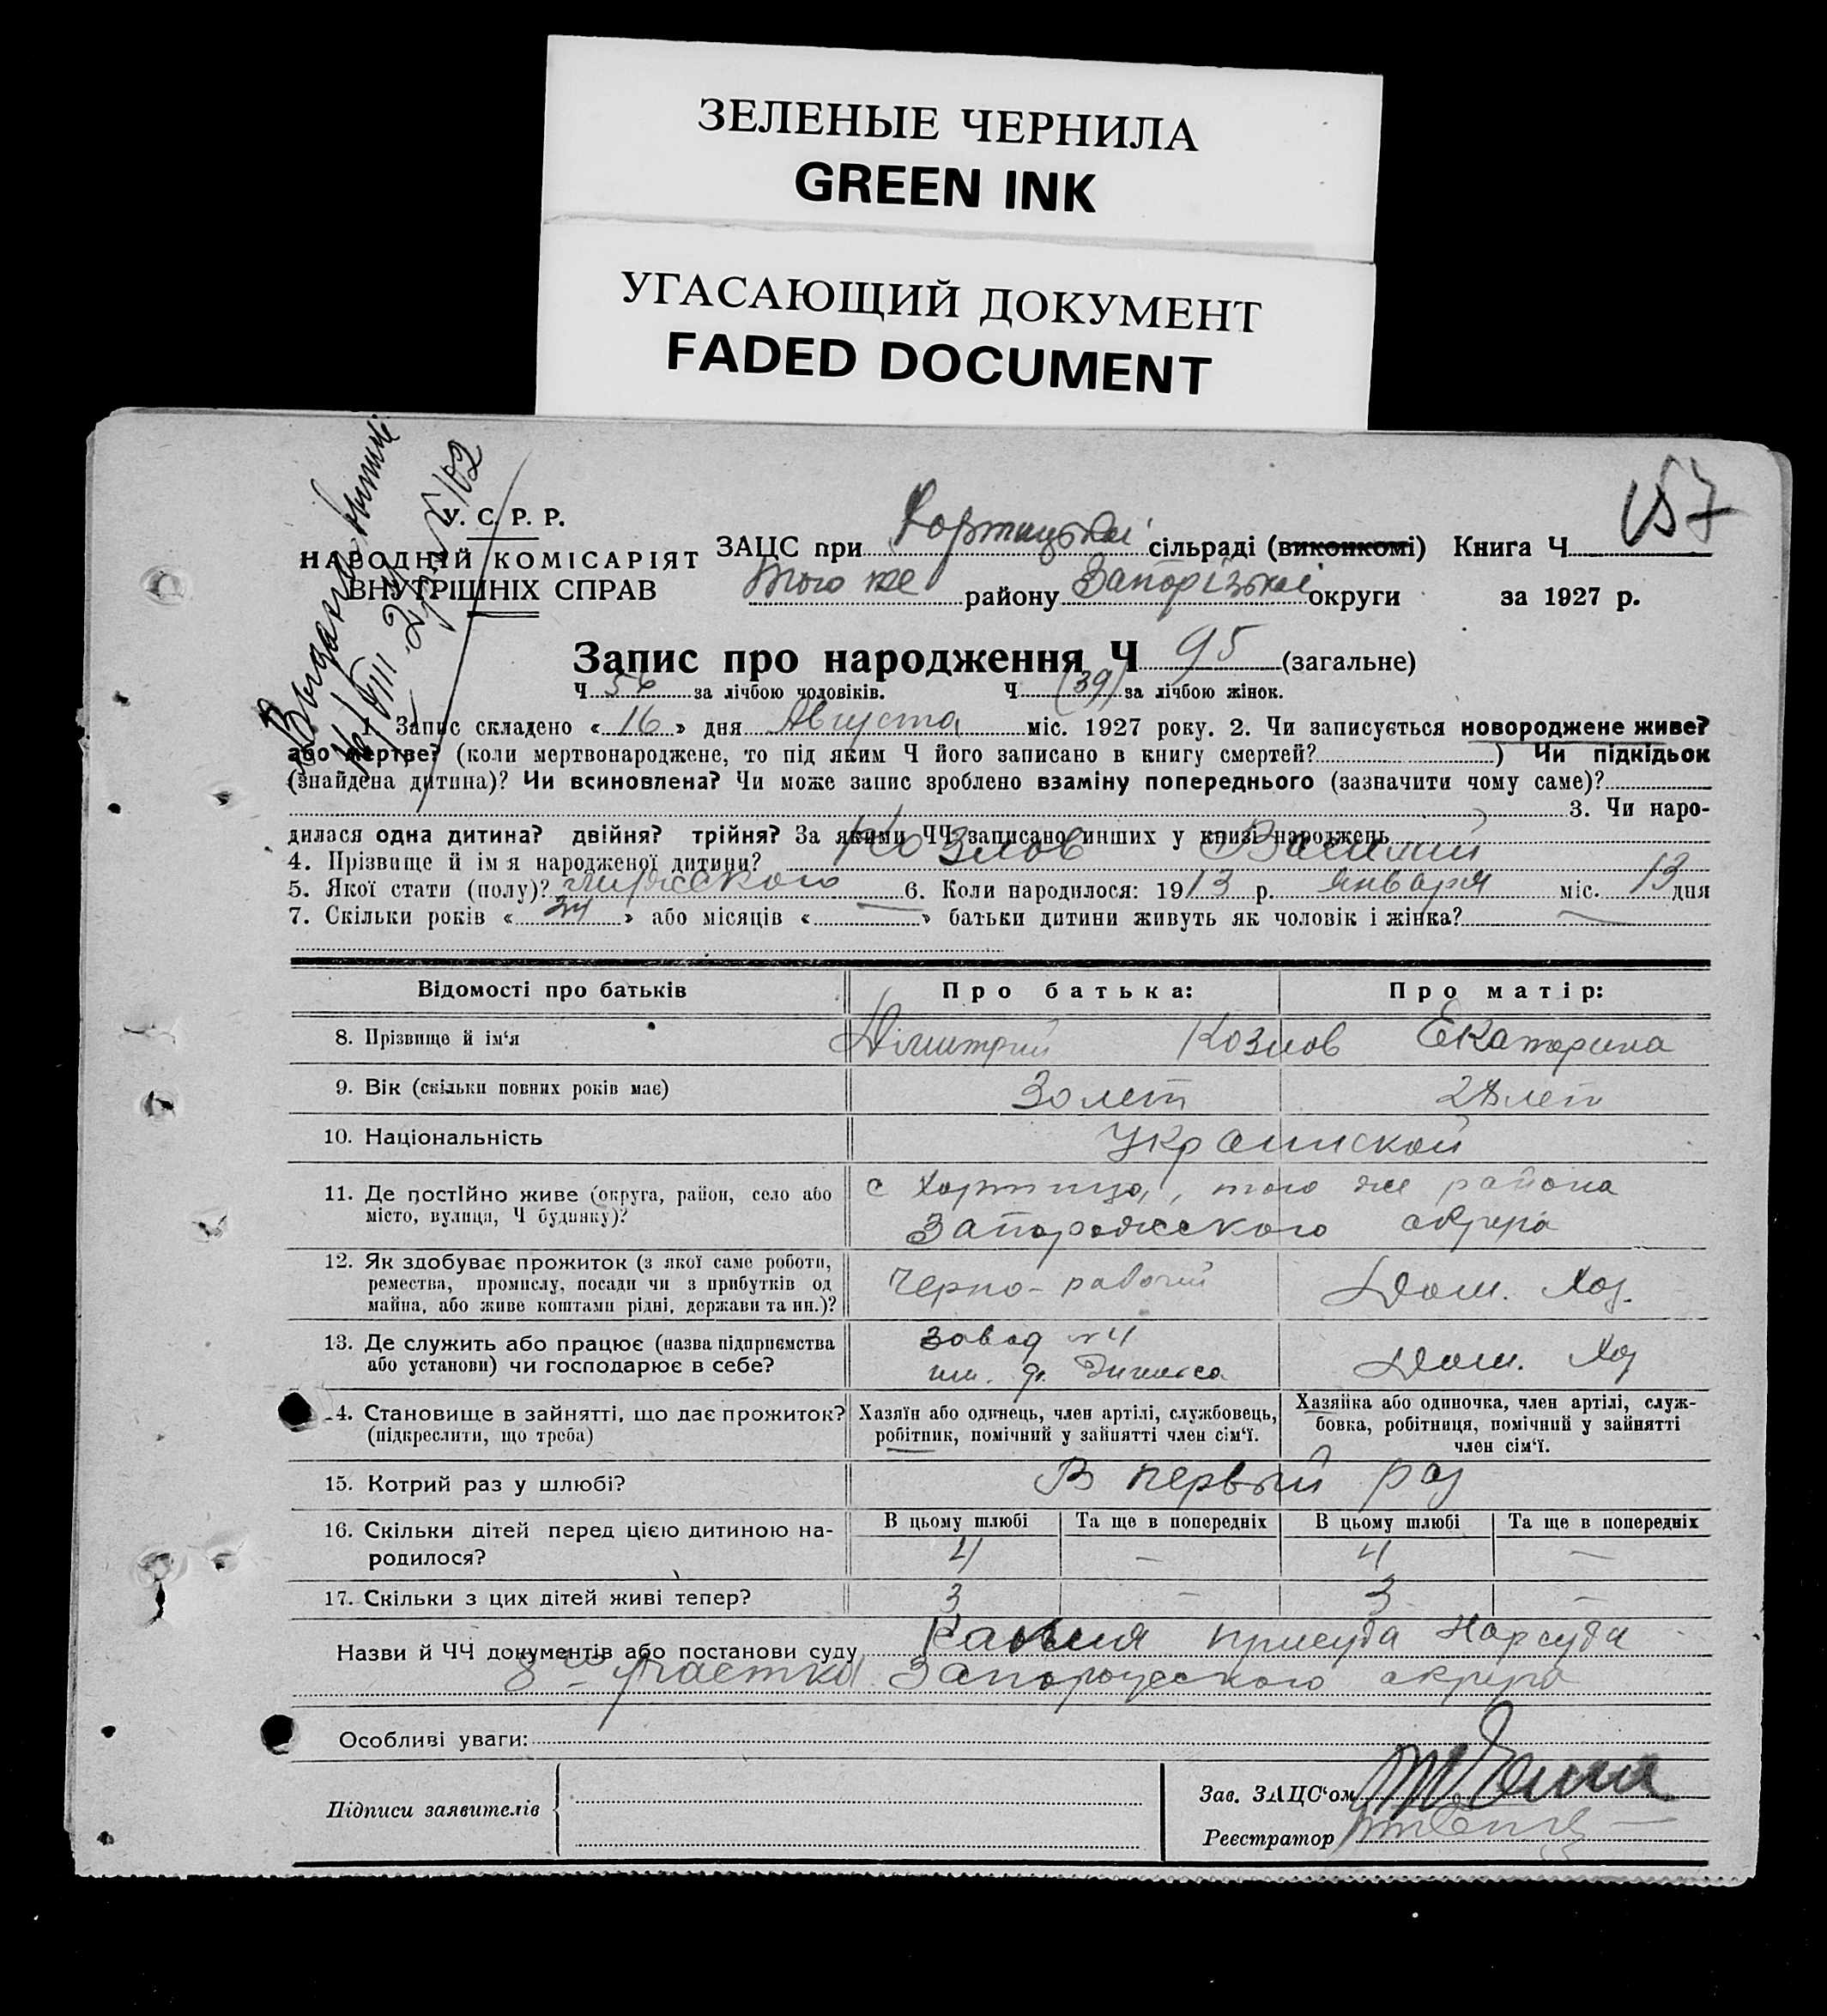 ЗЕЛЕНЫЕ ЧЕРНИЛА
GREEN INK
УГАСАЮЩИЙ ДОКУМЕНТ
FADED DOCUMENT
157
У. С. Р. Р.
НАРОДНІЙ КОМІСАРІЯТ
ВНУТРІШНІХ СПРАВ
ЗАЦС при Хортицькій сільраді (виконкомі) Книга Ч
того же району Запорізької округи за 1927 р.
Запис про народження Ч 95 (загальне)
Ч 56 за лічбою чоловіків. Ч (39) за лічбою жінок.
1. Запис складено « 16 » дня Августа міс. 1927 року. 2. Чи записується новороджене живе?
або мертве? (коли мертвонароджене, то під яким Ч його записано в книгу смертей? ) Чи підкідьок
(знайдена дитина)? Чи всиновлена? Чи може запис зроблено взаміну попереднього (зазначити чому саме)?
3. Чи наро-
дилася одна дитина? двійня? трійня? За якими ЧЧ записано инших у книзі народжень
4. Прізвище й ім я народженої дитини? Козлов Василий
5. Якої стати (полу)? мужеского 6. Коли народилося: 1913 р. января міс. 13 дня
7. Скільки років « » або місяців « — » батьки дитини живуть як чоловік і жінка? —
Відомості про батьків Про батька: Про матір:
8. Прізвище й ім‘я Дімитрий Козлов Екатерина
9. Вік (скільки повних років має) 30 лет 28 лет
10. Національність Украинской
11. Де постійно живе (округа, район, село або с Хортица, того же района
місто, вулиця, Ч будинку)? Запорожского округа
12. Як здобуває прожиток (з якої саме роботи,
ремества, промислу, посади чи з прибутків од Черно-рабочий Дом. Хоз.
майна, або живе коштами рідні, держави та ин.)?
13. Де служить або працює (назва підприємства Завод №4
або установи) чи господарює в себе? им. Энгельса Дом. Хоз
14. Становище в зайнятті, що дає прожиток? Хазяїн або одинець, член артілі, службовець, Хазяйка або одиночка, член артілі, служ-
(підкреслити, що треба) робітник, помічний у зайнятті член сім‘ї. бовка, робітниця, помічний у зайнятті
член сім‘ї.
15. Котрий раз у шлюбі? В первый раз
16. Скільки дітей перед цією дитиною на- В цьому шлюбі Та ще в попередніх В цьому шлюбі Та ще в попередніх
родилося? 4 — 4 —
17. Скільки з цих дітей живі тепер? 3 — 3 —
Назви й ЧЧ документів або постанови суду Копия присуда Нарсуда
8го участка Запорожского округа
Особливі уваги:
Підписи заявителів
Зав. ЗАЦС‘ом
Реєстратор